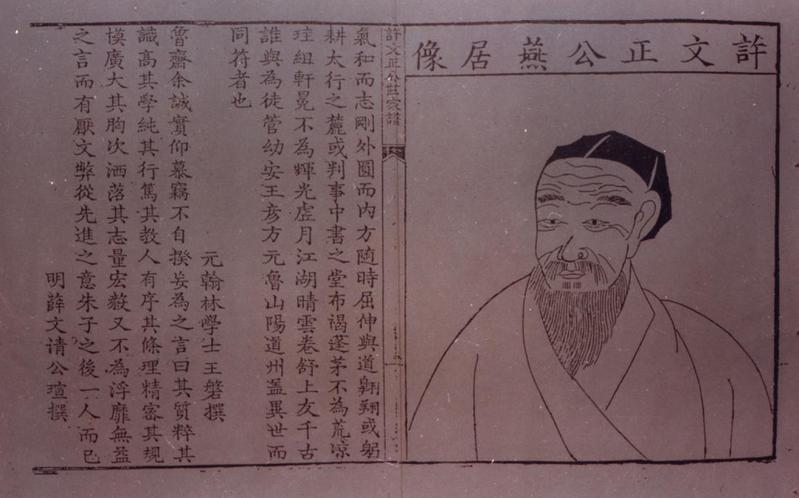 許文正公燕居像
許文正公世家譜
氣和而志剛外圓而內方隨時屈伸與道翺翔或躬
耕太行之麓或判事中書之堂布褐蓬茅不為荒凉
珪組軒冕不為輝光虛月江湖晴雲卷舒上友千古
誰與為徒管幼安王彥方元魯山陽道州蓋異世而
同符者也
元翰林學士王磐撰
魯齋余誠實仰慕竊不自揆妄為之言曰其質粹其
識高其學純其行篤其教人有序其條理精密其規
模廣大其胸次洒落其志量宏毅又不為浮靡無益
之言而有厭文弊從先進之意朱子之後一人而已
明薛文清公瑄撰